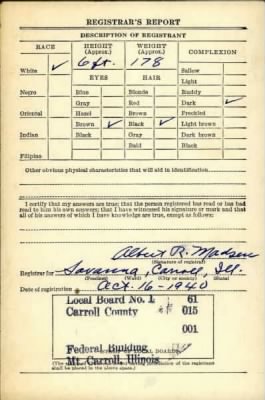 REGISTRAR'S REPORT
DESCRIPTION OF REGISTRANT
RACE HEIGHT (Approx.) WEIGHT (Approx.) COMPLEXION
White ✓ 6 ft. 178 Sallow
EYES HAIR Light
Negro Blue Blonde Ruddy
Gray Red Dark ✓
Oriental Hazel Brown Freckled
Brown ✓ Black ✓ Light brown
Indian Black Gray Dark brown
Bald Black
Filipino
Other obvious physical characteristics that will aid in identification
I certify that my answers are true; that the person registered has read or has had
read to him his own answers; that I have witnessed his signature or mark and that
all of his answers of which I have knowledge are true, except as follows:
Albert R. Madsen
(Signature of registrar)
Registrar for Savanna, Carroll, Ill.
(Precinct) (Ward) (City or county) (State)
Date of registration Oct. 16-1940
Local Board No. 1 61
Carroll County 015
001
Federal Building
Mt. Carroll, Illinois
LOCAL BOARD)
of the registrant
shall be placed in the above space.)